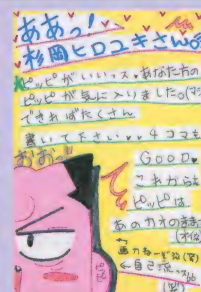 ああっ!
杉岡ヒロユキさん。
ピッピがいいっス。あなた方の
ピッピが気に入りました。
できればたくさん
書いて下さい♥♥ 4コマも
おおっ
GOOD♥
これからも
ピッピは
あのカオのまま
←自己流
(笑)